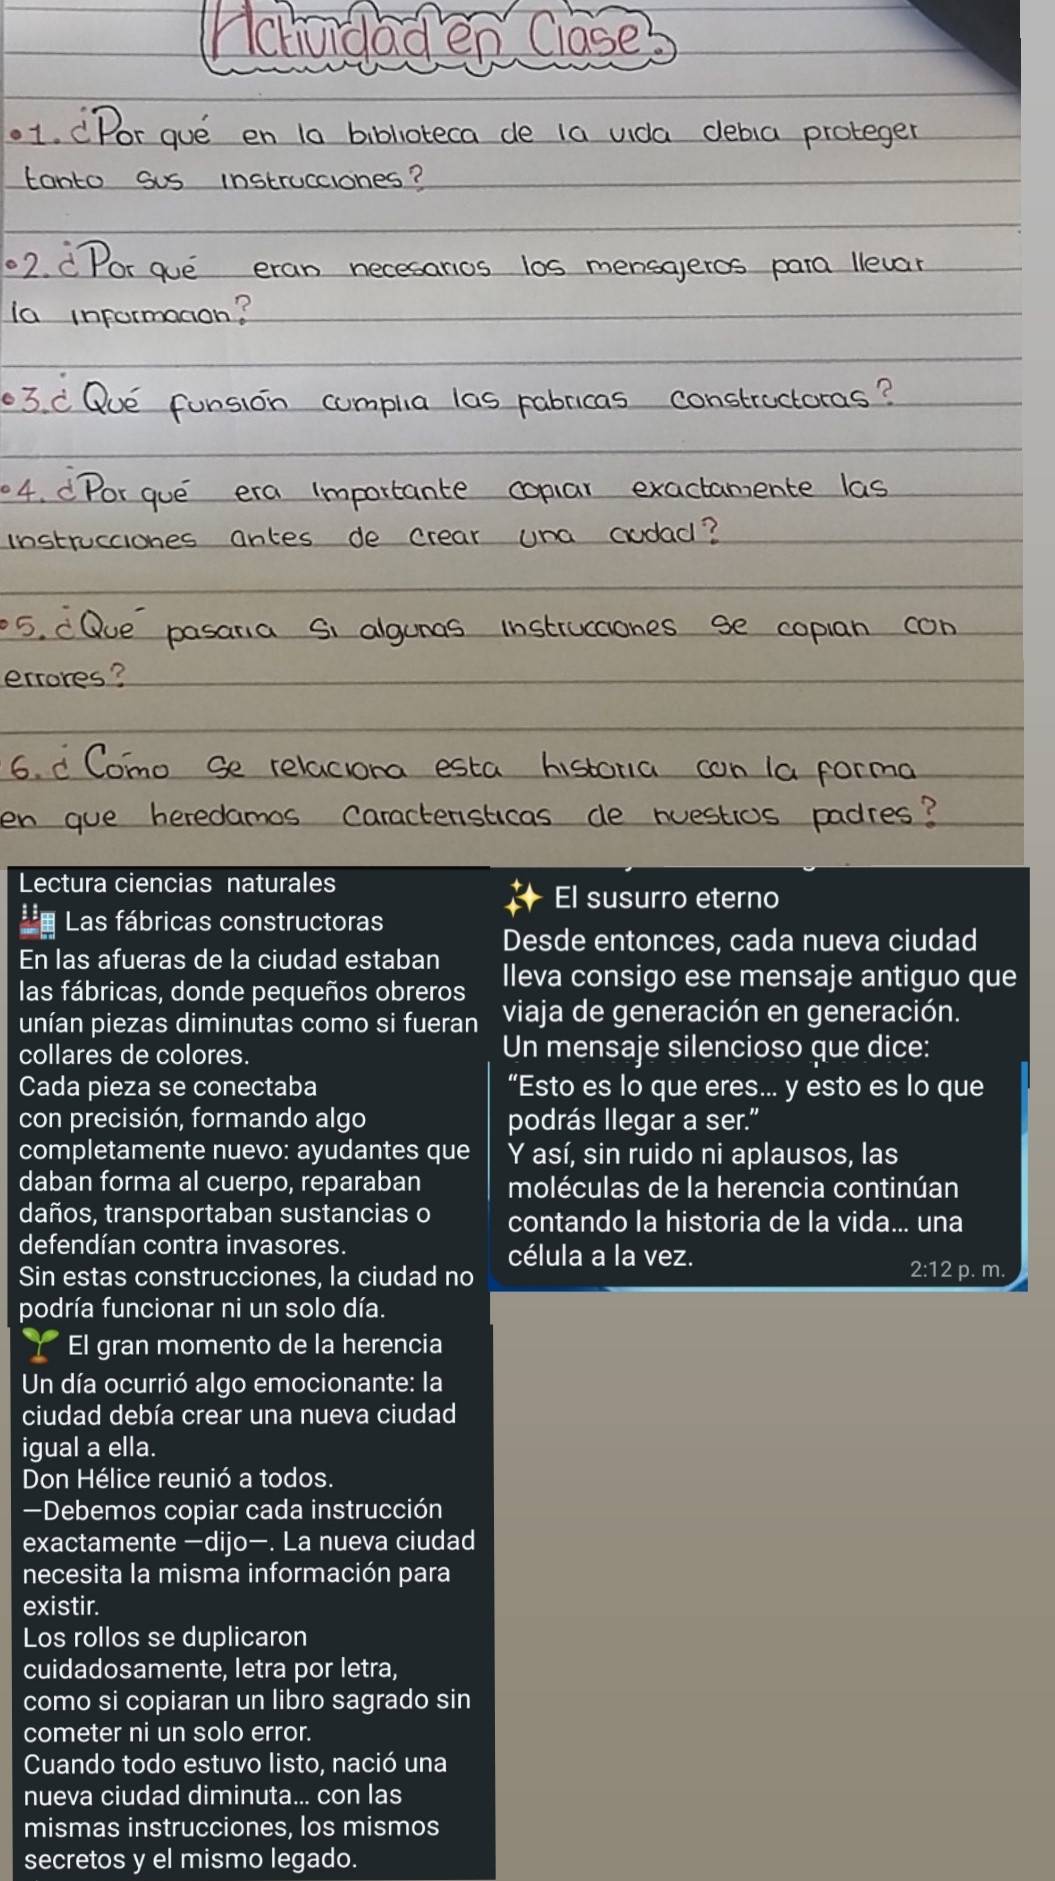 Actividad en Clase
1. ¿Por qué en la biblioteca de la vida debia proteger
tanto sus instrucciones?
2. ¿Por qué eran necesarios los mensajeros para llevar
la informacion?
3. ¿Qué funsión cumplia las fabricas constructoras?
4. ¿Por qué era importante copiar exactamente las
instrucciones antes de crear una ciudad?
5. ¿Qué pasaria si algunas instrucciones se copian con
errores?
6. ¿Cómo se relaciona esta historia con la forma
en que heredamos caracteristicas de nuestros padres?
Lectura ciencias naturales
🏭 Las fábricas constructoras
En las afueras de la ciudad estaban
las fábricas, donde pequeños obreros
unían piezas diminutas como si fueran
collares de colores.
Cada pieza se conectaba
con precisión, formando algo
completamente nuevo: ayudantes que
daban forma al cuerpo, reparaban
daños, transportaban sustancias o
defendían contra invasores.
Sin estas construcciones, la ciudad no
podría funcionar ni un solo día.
🌱 El gran momento de la herencia
Un día ocurrió algo emocionante: la
ciudad debía crear una nueva ciudad
igual a ella.
Don Hélice reunió a todos.
—Debemos copiar cada instrucción
exactamente —dijo—. La nueva ciudad
necesita la misma información para
existir.
Los rollos se duplicaron
cuidadosamente, letra por letra,
como si copiaran un libro sagrado sin
cometer ni un solo error.
Cuando todo estuvo listo, nació una
nueva ciudad diminuta... con las
mismas instrucciones, los mismos
secretos y el mismo legado.
✨ El susurro eterno
Desde entonces, cada nueva ciudad
lleva consigo ese mensaje antiguo que
viaja de generación en generación.
Un mensaje silencioso que dice:
“Esto es lo que eres... y esto es lo que
podrás llegar a ser.”
Y así, sin ruido ni aplausos, las
moléculas de la herencia continúan
contando la historia de la vida... una
célula a la vez.
2:12 p. m.